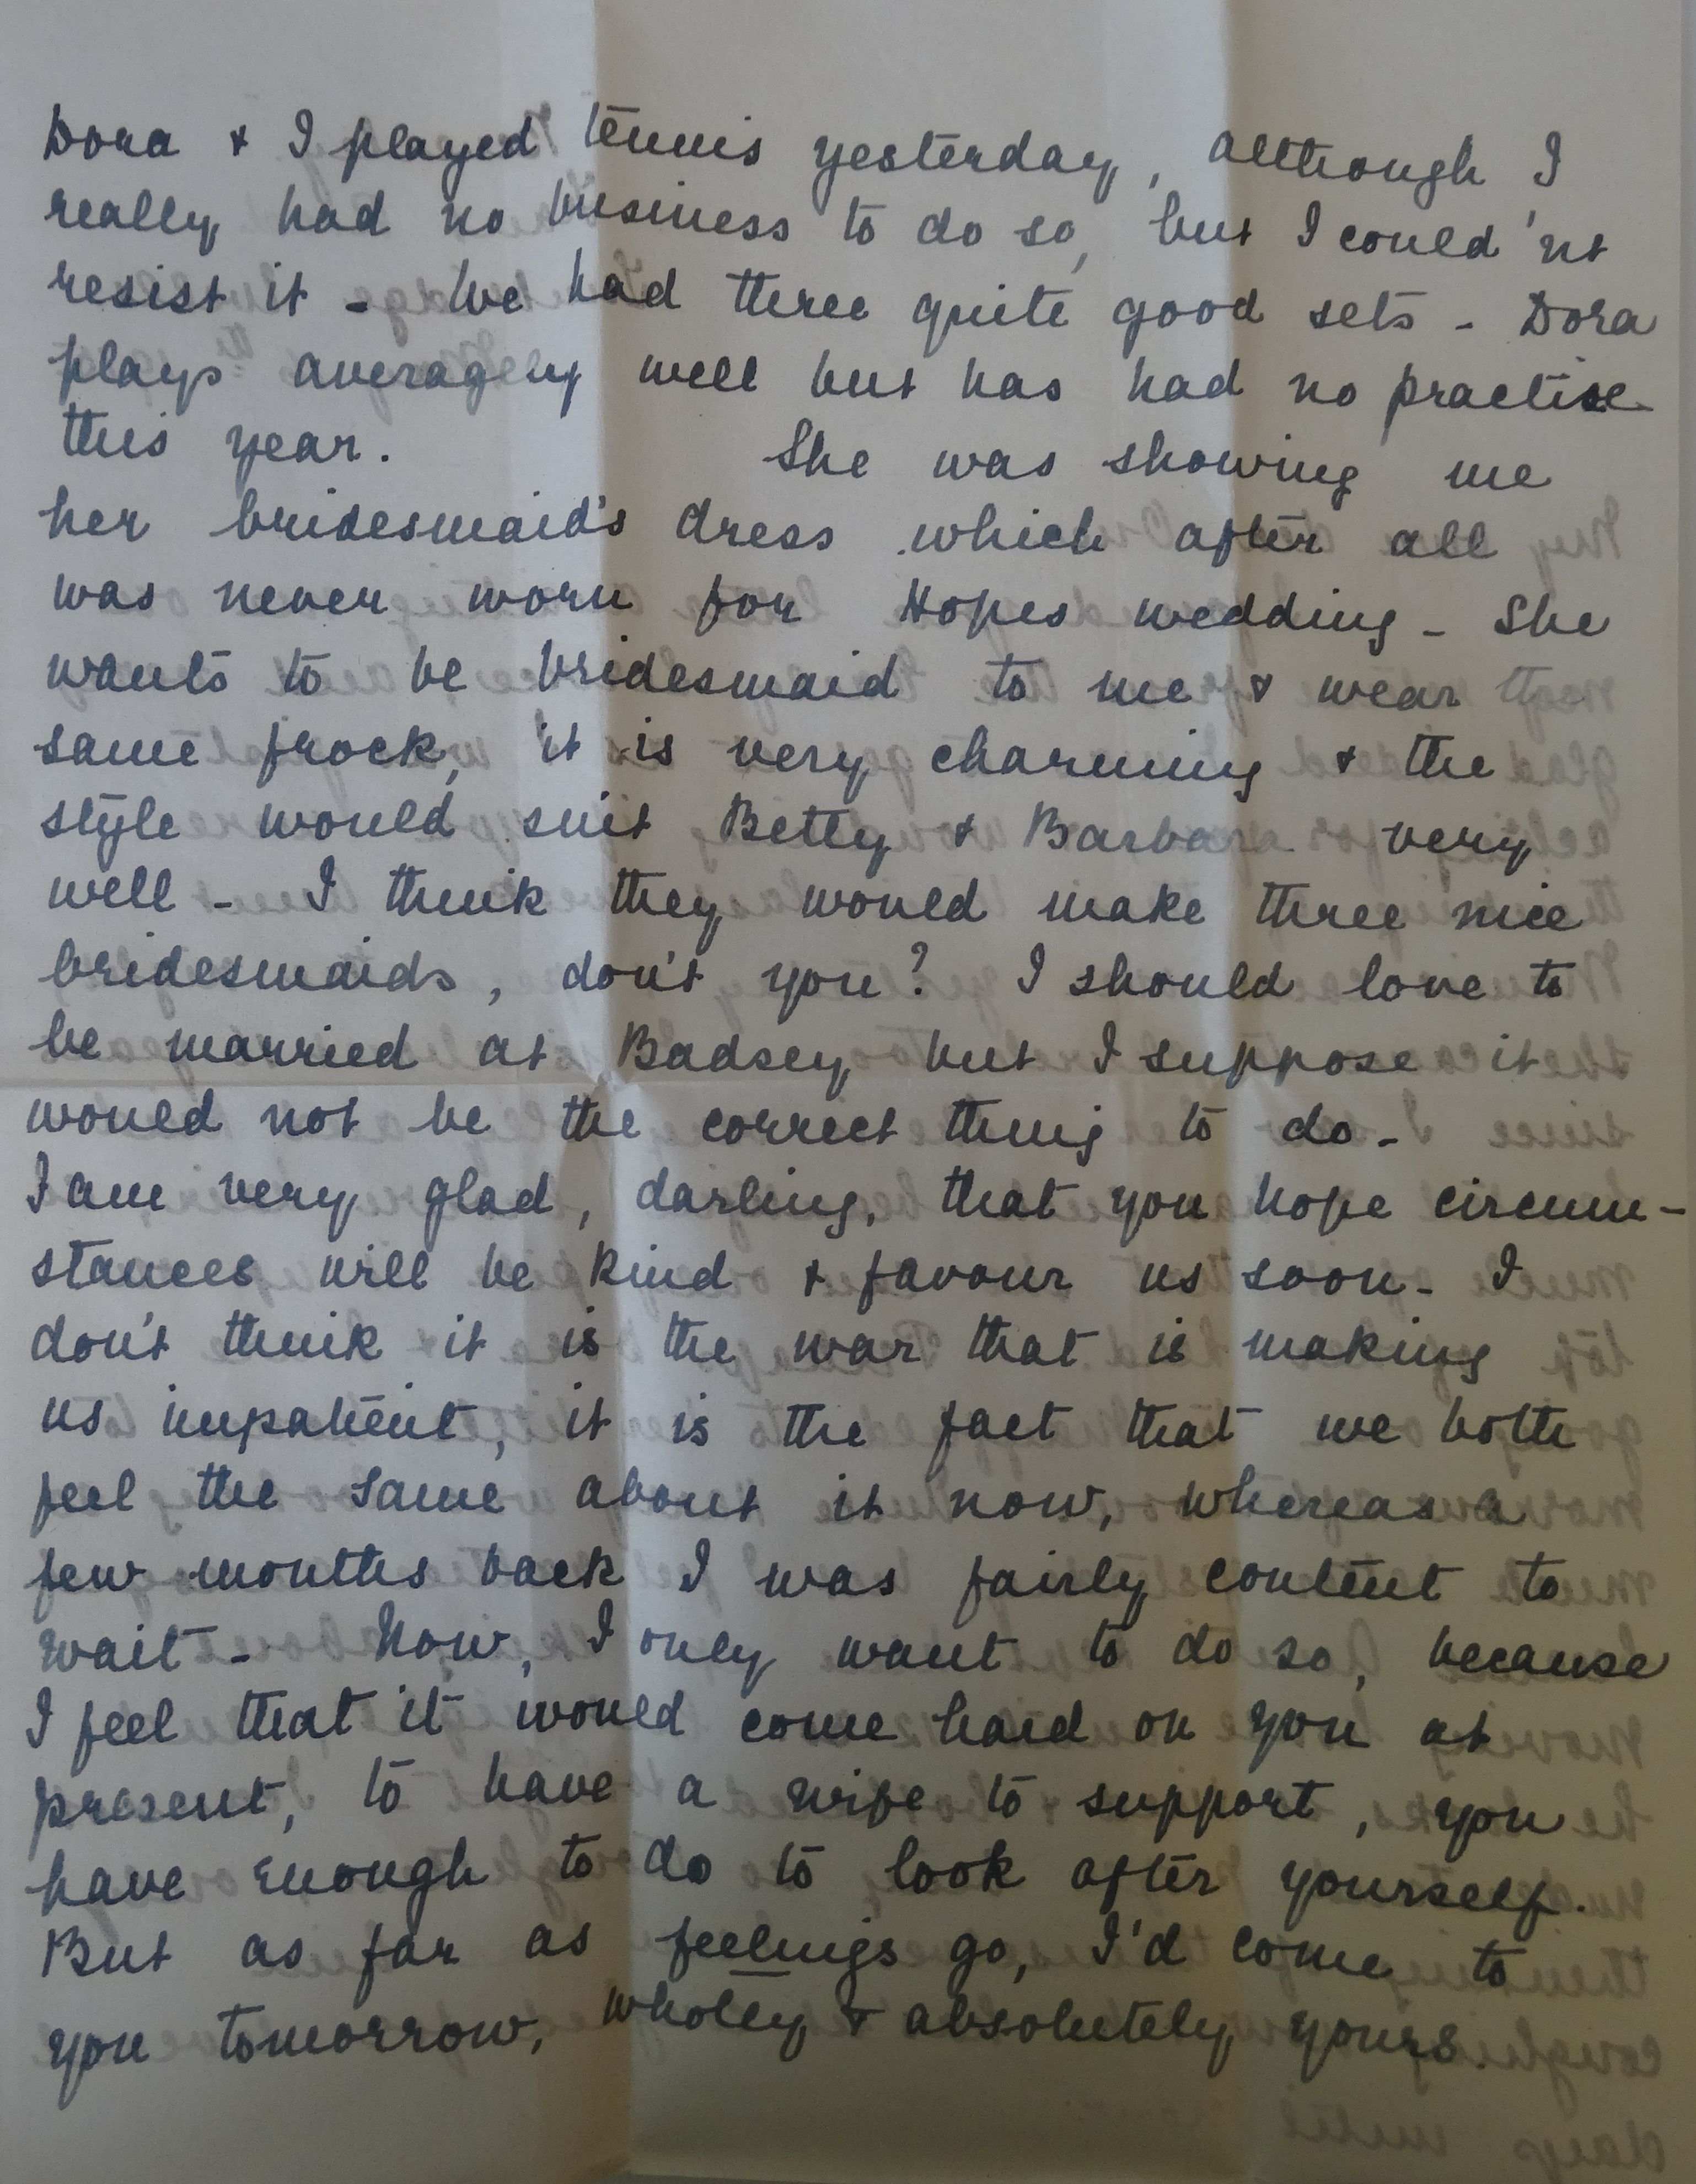 Dora & I played tennis yesterday, although I
really had no business to do so, but I could'nt
resist it - We had three quite good sets - Dora
plays averagely well but has had no practise
this year. She was showing me
her bridesmaid's dress which after all
was never worn for Hopes wedding - She
wants to be bridesmaid to me & wear the
same frock, it is very charming & the
style would suit Betty & Barbara very
well - I think they would make three nice
bridesmaids, don't you? I should love to
be married at Badsey but I suppose it
would not be the correct thing to do -
I am very glad, darling, that you hope circum-
stances will be kind & favour us soon - I
don't think it is the war that is making
us impatient, it is the fact that we both
feel the same about it now, whereas a
few months back I was fairly content to
wait - Now, I only want to do so, because
I feel that it would come hard on you at
present, to have a wife to support, you
have enough to do to look after yourself.
But as far as feelings go, I'd come to
you tomorrow, wholly & absolutely yours.